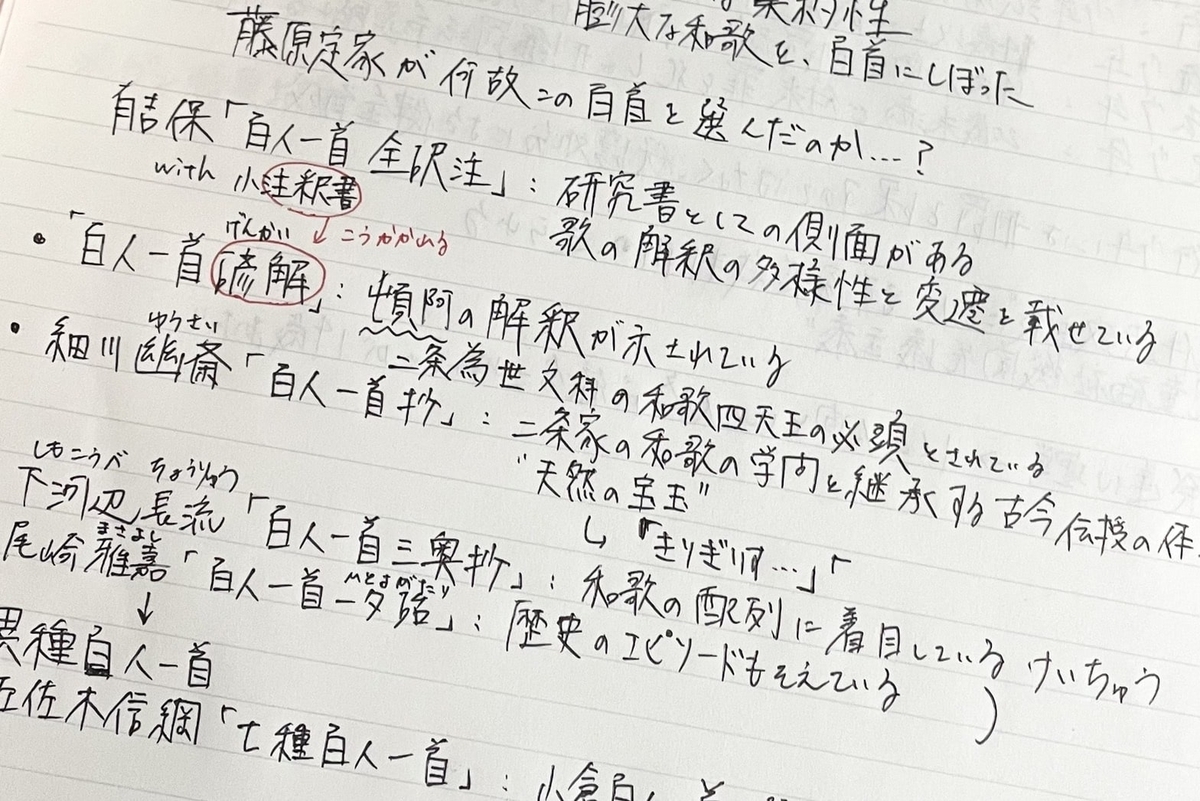 膨大な和歌を、百首にしぼった
藤原定家が何故この百首を選んだのか…?
有吉保「百人一首 全訳注」: 研究書としての側面がある
with 小注釈書
こうかかれる
歌の解釈の多様性と変遷を載せている
げんかい
・「百人一首 諺解」: 頓阿の解釈が示されている
二条為世文科の和歌四天王の必頭とされている
ゆうさい
・細川 幽斎「百人一首抄」: 二条家の和歌の学問を継承する古今伝授の体
"天然の宝玉"
↳「きりぎりす…」
しもこうべ ちょうりゅう
下河辺 長流「百人一首三奥抄」: 和歌の配列に着目している けいちゅう
まさよし ひとよがたり
尾崎 雅嘉「百人一首一夕話」: 歴史のエピソードもそえている
↓
異種百人一首
佐佐木信綱「七種百人一首」: 小倉百人一首